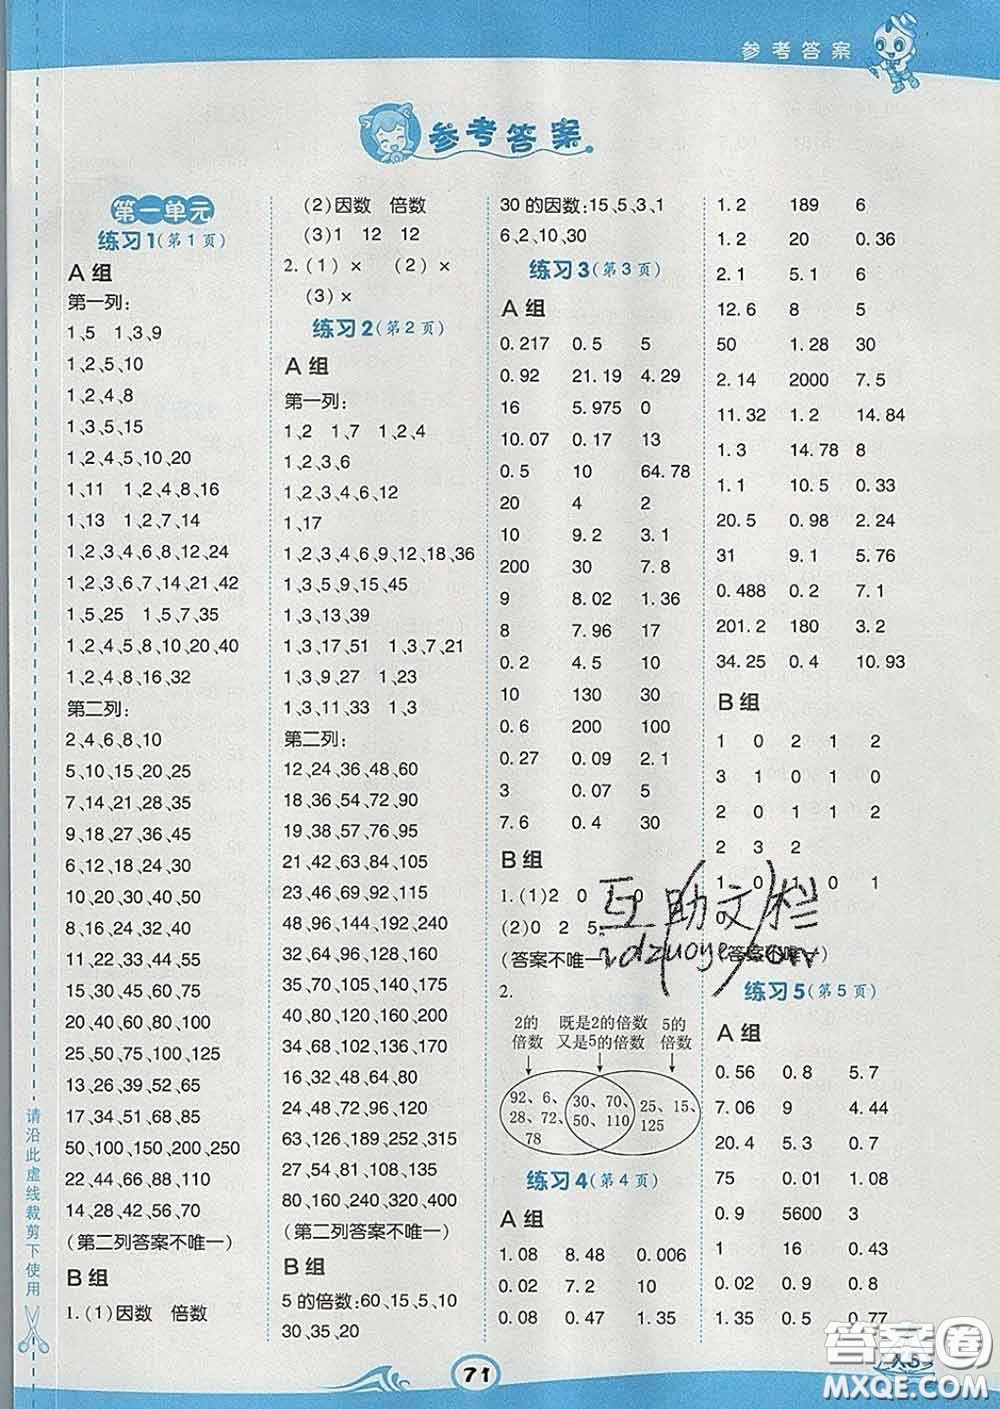 参考答案
参考答案
第一单元
练习1(第1页)
A组
第一列:
1、5 1、3、9
1、2、5、10
1、2、4、8
1、3、5、15
1、2、4、5、10、20
1、11 1、2、4、8、16
1、13 1、2、7、14
1、2、3、4、6、8、12、24
1、2、3、6、7、14、21、42
1、5、25 1、5、7、35
1、2、4、5、8、10、20、40
1、2、4、8、16、32
第二列:
2、4、6、8、10
5、10、15、20、25
7、14、21、28、35
9、18、27、36、45
6、12、18、24、30
10、20、30、40、50
8、16、24、32、40
11、22、33、44、55
15、30、45、60、75
20、40、60、80、100
25、50、75、100、125
13、26、39、52、65
17、34、51、68、85
50、100、150、200、250
22、44、66、88、110
14、28、42、56、70
(第二列答案不唯一)
B组
1.(1)因数 倍数
(2)因数 倍数
(3)1 12 12
2.(1)× (2)×
(3)×
练习2(第2页)
A组
第一列:
1、2 1、7 1、2、4
1、2、3、6
1、2、3、4、6、12
1、17
1、2、3、4、6、9、12、18、36
1、3、5、9、15、45
1、3、13、39
1、3、17、51 1、3、7、21
1、3、9、27 1、23
1、3、11、33 1、3
第二列:
12、24、36、48、60
18、36、54、72、90
19、38、57、76、95
21、42、63、84、105
23、46、69、92、115
48、96、144、192、240
24、48、72、96、120
31、62、93、124、155
35、70、105、140、175
37、74、111、148、185
34、68、102、136、170
16、32、48、64、80
27、54、81、108、135
63、126、189、252、315
32、64、96、128、160
80、160、240、320、400
(第二列答案不唯一)
B组
5的倍数:60、15、5、10
30、35、20
30的因数:15、5、3、1
6、2、10、30
练习3(第3页)
A组
0.217 0.5 5
0.92 21.19 4.29
16 5.975 0
10.07 0.17 13
0.5 10 64.78
20 4 2
10 9.2 3.1
200 30 7.8
9 8.02 1.36
8 7.96 17
0.2 4.5 10
10 130 30
0.6 200 100
0.27 0.09 2.1
3 0.07 5
7.6 0.4 30
B组
1.(1)2 0 0
(2)0 2 5
(答案不唯一
2.
2的倍数
既是2的倍数又是5的倍数
5的倍数
92、6、
28、72、
78
30、70、
50、110
25、15、
125
练习4(第4页)
A组
1.08 8.48 0.006
0.02 7.2 10
0.08 0.47 1.35
1.2 189 6
1.2 20 0.36
2.1 5.1 6
12.6 8 5
50 1.28 30
2.14 2000 7.5
11.32 1.2 14.84
1.3 14.75 8
1.1 10.5 0.33
20.5 0.98 2.24
31 9.1 5.76
0.488 0.2 7.1
201.2 180 3.2
34.25 0.4 10.93
B组
1 0 2 1 2
3 1 0 1 0
2 0 1 1 2
2 3 2
1 0 1 0 1
0
(答案不唯一)
练习5(第5页)
A组
0.56 0.8 5.7
7.06 9 4.44
20.4 5.3 0.7
75 0.01 1.08
0.9 5600 3
1 16 0.43
0.02 0.9 0.8
1.35 0.5 0.77
请沿此虚线裁剪下使用
71
互助文栏
答案圈
MXQE.COM